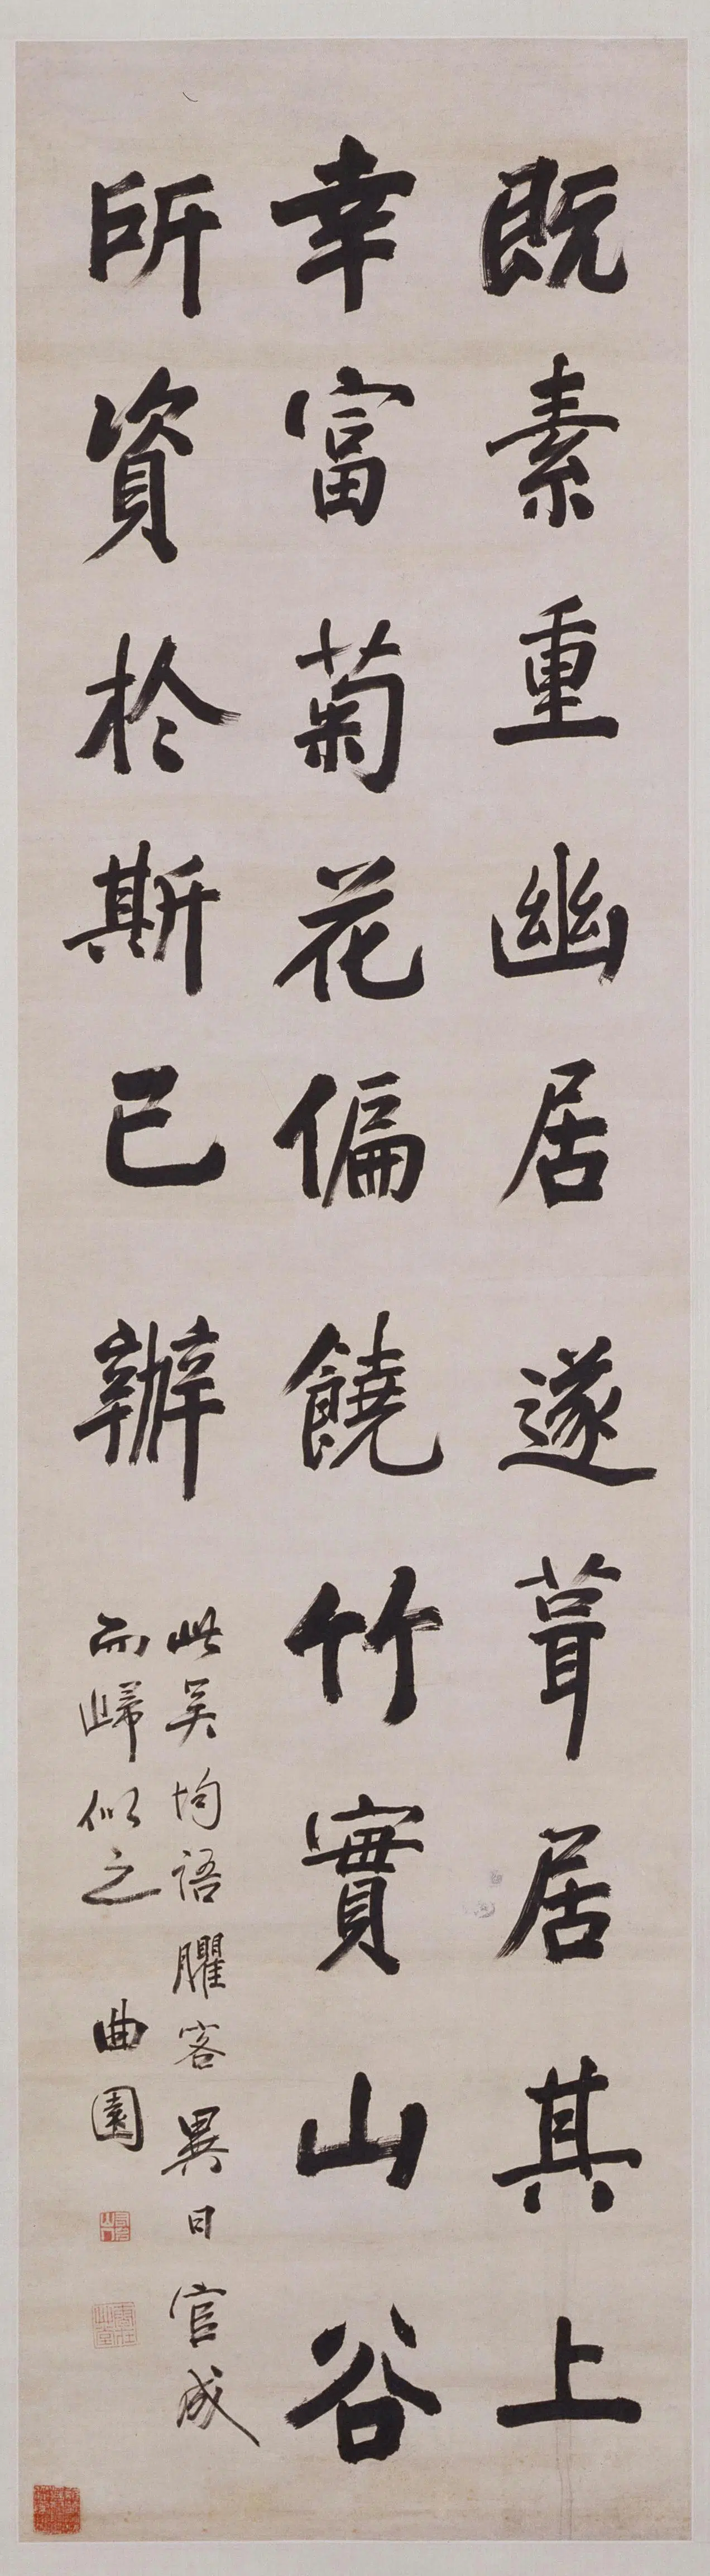 既素重幽居遂葺居其上
幸富菊花偏饒竹實山谷
所資於斯已辦
此吴均語臞客異日官成
而歸似之
曲園